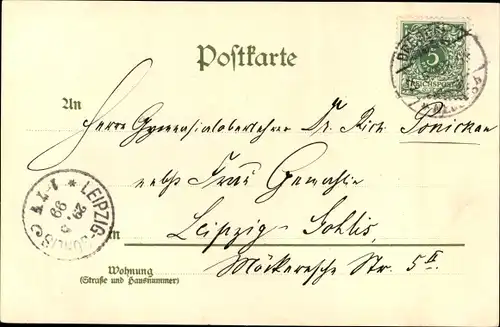 Postkarte
5
REICHSPOST
An
Herrn Gymnasialoberlehrer Dr. Rich. Ponickau
nebst Frau Gemahlin
LEIPZIG-GOHLIS
29.
99
in Leipzig-Gohlis,
Möckernsche Str. 5 II
Wohnung
(Straße und Hausnummer)